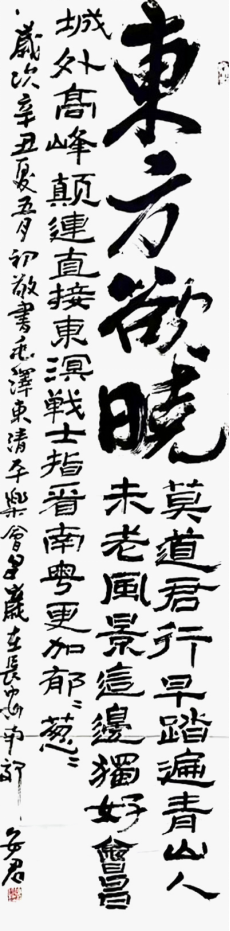 東方欲曉
莫道君行早踏遍青山人
未老風景這邊獨好會昌
城外髙峰顛連直接東溟戦士指看南粤更加郁〻葱〻
歲次辛丑夏五月初敬書毛澤東清平樂會昌歲在長安南郊